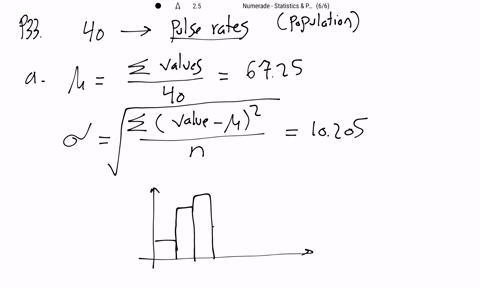 2.5 Numerade - Statistics & P... (6/6)
P33. 40 → Pulse rates (population)
a. μ = Σ values / 40 = 67.25
σ = √(Σ (value - μ)² / n) = 10.205